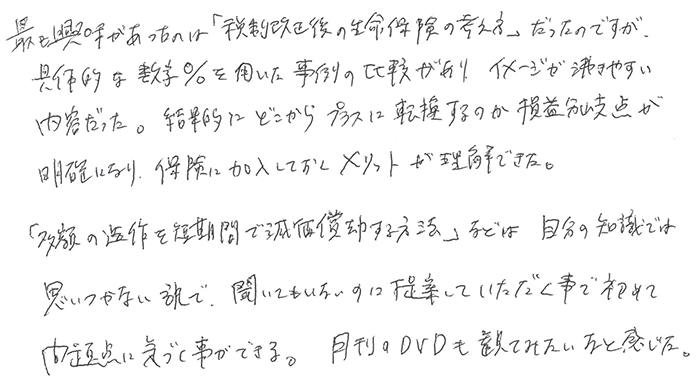 最も興味があったのは「税制改正後の生命保険の考え方」だったのですが、
具体的な数字%を用いた事例の比較があり イメージが沸きやすい
内容だった。結果的にどこからプラスに転換するのか損益分岐点が
明確になり、保険に加入しておくメリットが理解できた。
「多額の造作を短期間で減価償却する方法」などは 自分の知識では
思いつかない話で、聞いてもいないのに提案していただく事で初めて
問題点に気づく事ができる。 月刊のDVDも観てみたいなと感じた。